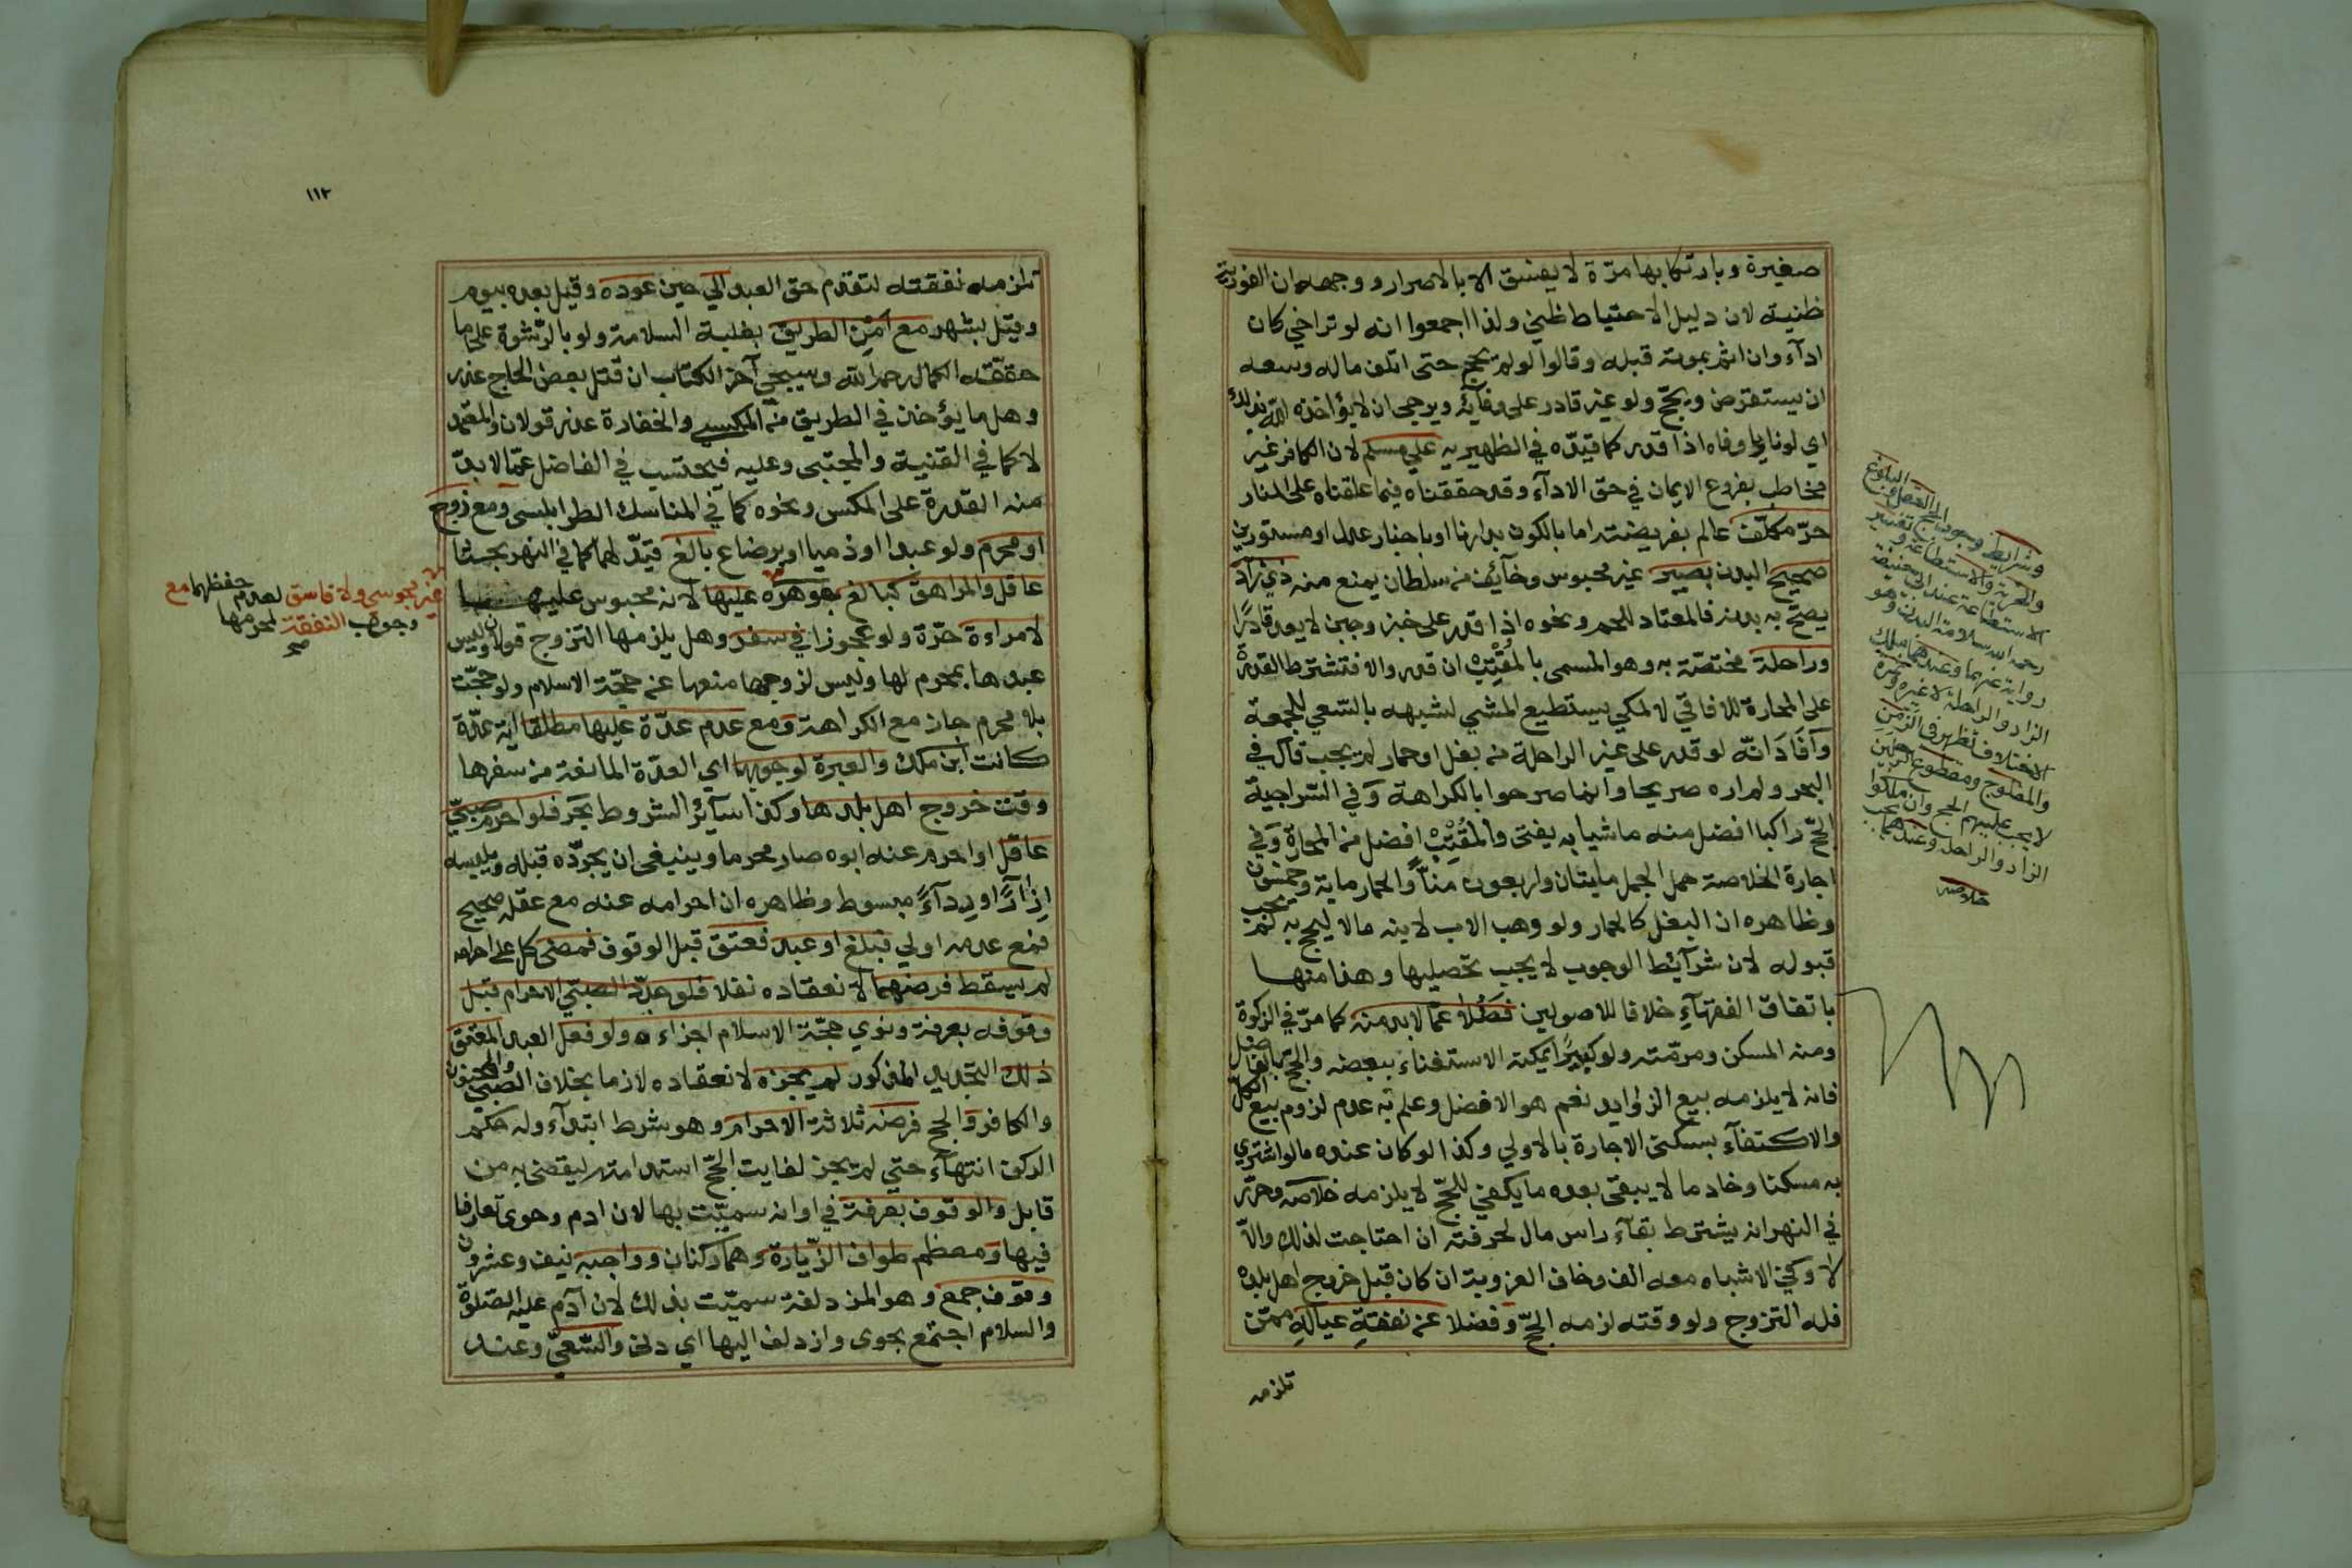 صغيرة وبارتكابها مرّة لا يفسق الا بالاصرار ووجهه ان الفورية
ظنية لان دليل الاحتياط ظني ولذا اجمعوا انه لو تراخي كان
ادآء وان اثم بموته قبله وقالوا لو لم يحج حتى اتلف ماله وسعه
ان يستقرض ويحجّ ولو غير قادر على وفائه ويرجى ان لا يؤاخذه الله بذلك
اي لو ناويا وفاه اذا قدر كما قيّده في الظهيريه علي مسلم لان الكافر غير
مخاطب بفروع الايمان في حق الادآء وقد حققناه فيما علقناه على المنار
حرّ مكلّف عالم بفريضته اما بالكون بدارنا او باخبار عدل او مستورين
صحيح البدن بصير غير محبوس وخائف من سلطان يمنع منه ذي زاد
يصحّ به بدنه فالمعتاد للحم ونحوه اذا قدر على خبز وجبن لا يعد قادرًا
وراحلة مختصّة به وهو المسمى بالمُقْتَب ان قدر والا فتشترط القدرة
على المحارة للافاقي لا لمكي يستطيع المشي لشبهه بالسّعي للجمعة
وآفَادَ انّه لو قدر على غير الراحلة من بغل او حمار لم يجب قال في
البحر ولم اره صريحا وانما صرحوا بالكراهة وَفي السّراجية
الحجّ راكبا افضل منه ماشيا به يفتى والمُقْتَب افضل من المحارة وَفي
اجارة الخلاصة حمل الجمل مايتان واربعون مَنّاً والحمار ماية وخمسون
وظاهره ان البغل كالحمار ولو وهب الاب لابنه مالا ليحج به لم يجب
قبوله لان شرآئط الوجوب لا يجب تحصيلها وهذا منها
باتفاق الفقهآءِ خلافا للاصوليين فَضُلا عمّا لا بد منه كما مرّ في الزكوة
ومنه المسكن ومرمّته ولو كبيرًا يمكنه الاستغناء ببعضه والحجّ بالفاضل
فانه لا يلزمه بيع الزوايد نعم هو الافضل وعلم به عدم لزوم بيع الكل
والاكتفآء بسكنى الاجارة بالاولي وكذا لو كان عنده ما لو اشتري
به مسكنا وخادما لا يبقى بعده ما يكفي للحجّ لا يلزمه خلاصه وحرّر
في النهر انه يشترط بقآء راس مال لحرفته ان احتاجت لذلك والّا
لا وَفي الاشباه معه الف وخاف العزوبة ان كان قبل خروج اهل بلده
فله التزوج ولو وقته لزمه الحجّ وَفضلا عن نفقةِ عيالهِ ممّن
تلزمه
وشرايط وجوب الحج العقل والبلوغ
والحرية والاستطاعة وتفسير
الاستطاعة عند ابي حنيفة
رحمه الله سلامة البدن وهو
رواية عنهما وعندهما ملك
الزاد والراحلة لا غير وثمرة
الاختلاف تظهر في الزَمِن
والمفلوج ومقطوع الرجلين
لا يجب عليهم الحج وان ملكوا
الزاد والراحلة وعندهما يجب
خلاصه
١١٢
تلزمه نفقته لتقدم حق العبد الي حين عوده وقيل بعده بيوم
وقيل بشهر مع اَمْنِ الطريق بغلبة السلامة ولو بالرّشوة على ما
حققته الكمال رحمه الله وسيجئ آخر الكتاب ان قتل بعض الحاج عذر
وهل ما يؤخذ في الطريق من المكس والخفارة عذر قولان والمعتمد
لا كما في القنية والمجتبى وعليه فيحتسب في الفاضل عمّا لا بدّ
منه القدرة على المكس ونحوه كما في المناسك الطرابلسى وَمع زوج
او محرم ولو عبدا او ذميا او برضاع بالغ قيّد لهما كما في النهر بحثا
عاقل والمراهق كبالغ جوهره عليها لانه محبوس عليها
غير مجوسي ولا فاسق لعدم حفظهما مع
وجوب النفقة لمحرمها
صح
لامراءة حرّة ولو عجوزا في سفر وهل يلزمها التزوج قولان وليس
عبدها بمحرم لها وليس لزوجها منعها عن حجّة الاسلام ولو حجّت
بلا محرم جاز مع الكراهة وَمع عدم عدّة عليها مطلقا اية عدّة
كانت ابن ملك والعبرة لوجوبها اي العدّة المانعة من سفرها
وقت خروج اهل بلدها وكذا سآئر الشروط بحَر فلو احرم صبيّ
عاقل او احرم عنه ابوه صار محرما وينبغي ان يجرّده قبله ويلبسه
اِزْآرًا او رِدآءً مبسوط وظاهره ان احرامه عنه مع عقله صحيح
فمع عدمه اولي فبلغ او عبد فعتق قبل الوقوف فمضى كل على احرامه
لم يسقط فرضهما لانعقاده نفلا فلو جدّد الصبيّ الاحرام قبل
وقوفه بعرفة ونوي حجّة الاسلام اجزاءه ولو فعل العبد المعتق
ذلك التجديد المذكور لم يجزه لانعقاده لازما بخلاف الصّبي والمجنون
والكافر وَالحج فرضه ثلاثة الاحرام وهو شرط ابتدآء وله حكم
الركن انتهآءً حتي لم يجز لفايت الحجّ استدامته ليقضى به من
قابل والوقوف بعرفة في اوانه سميّت بها لان ادم وحوى تعارفا
فيها وَمعظم طواف الزّيارة وهما ركنان وواجبه نيف وعشرون
وقوف جمع وهو المزدلفة سميّت بذلك لان آدم عليه الصّلوة
والسلام اجتمع بحوى وازدلف اليها اي دنى والسّعيّ وعند